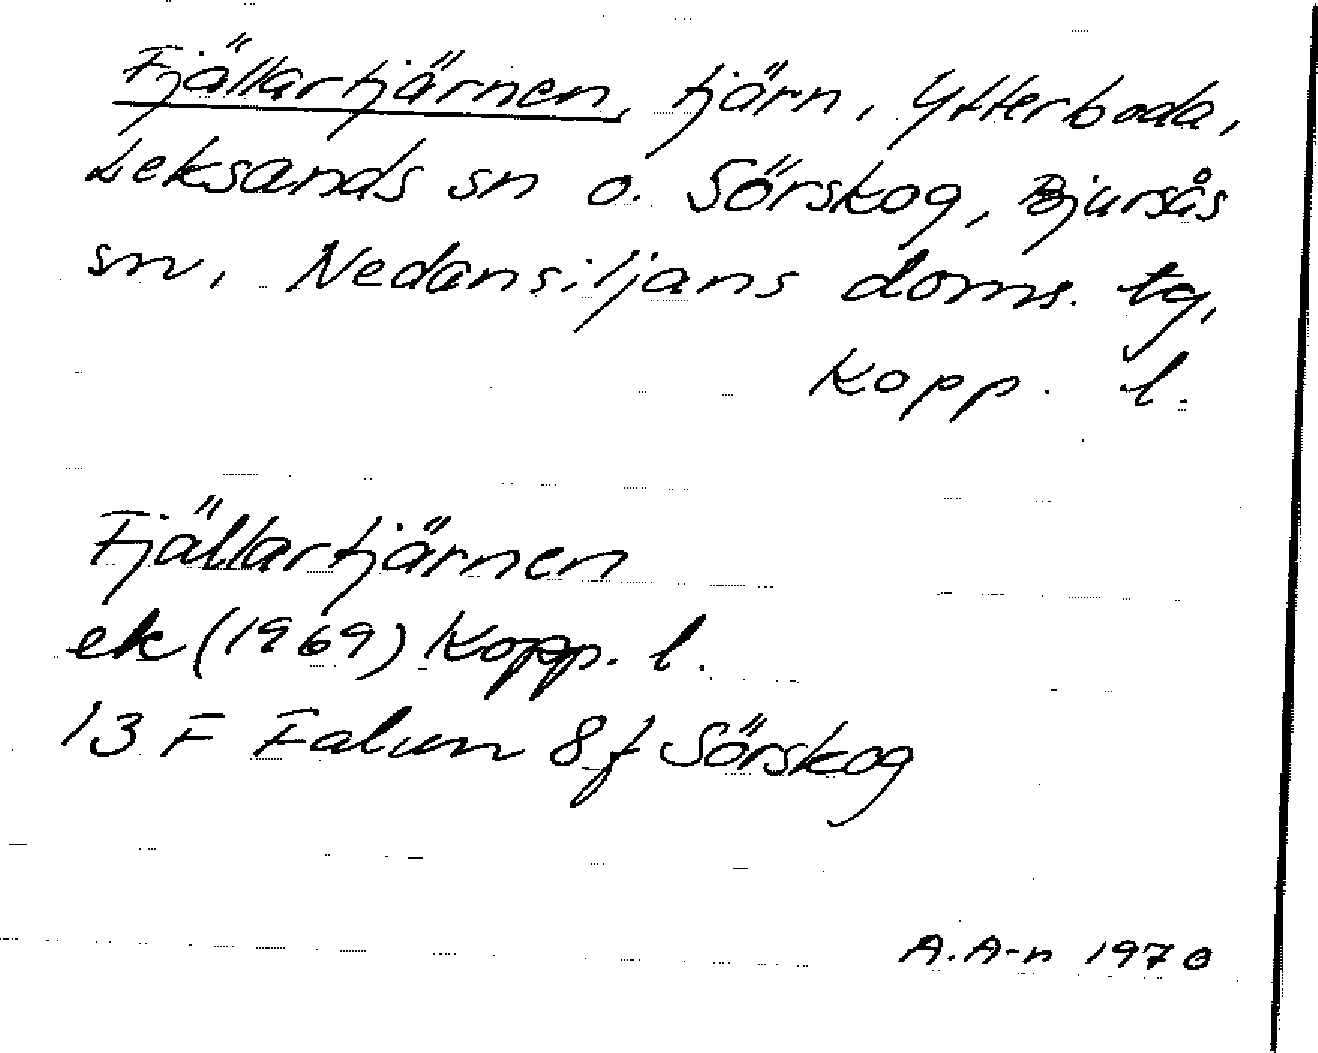 Fjällartjärnen, tjärn, Ytterboda,
Leksands sn o. Sörskog, Bjursås
sn, Nedansiljans doms. tg,
Kopp. l.
Fjällartjärnen
ek (1969) Kopp. l.
13 F Falun 8f Sörskog
A.A-n 1970